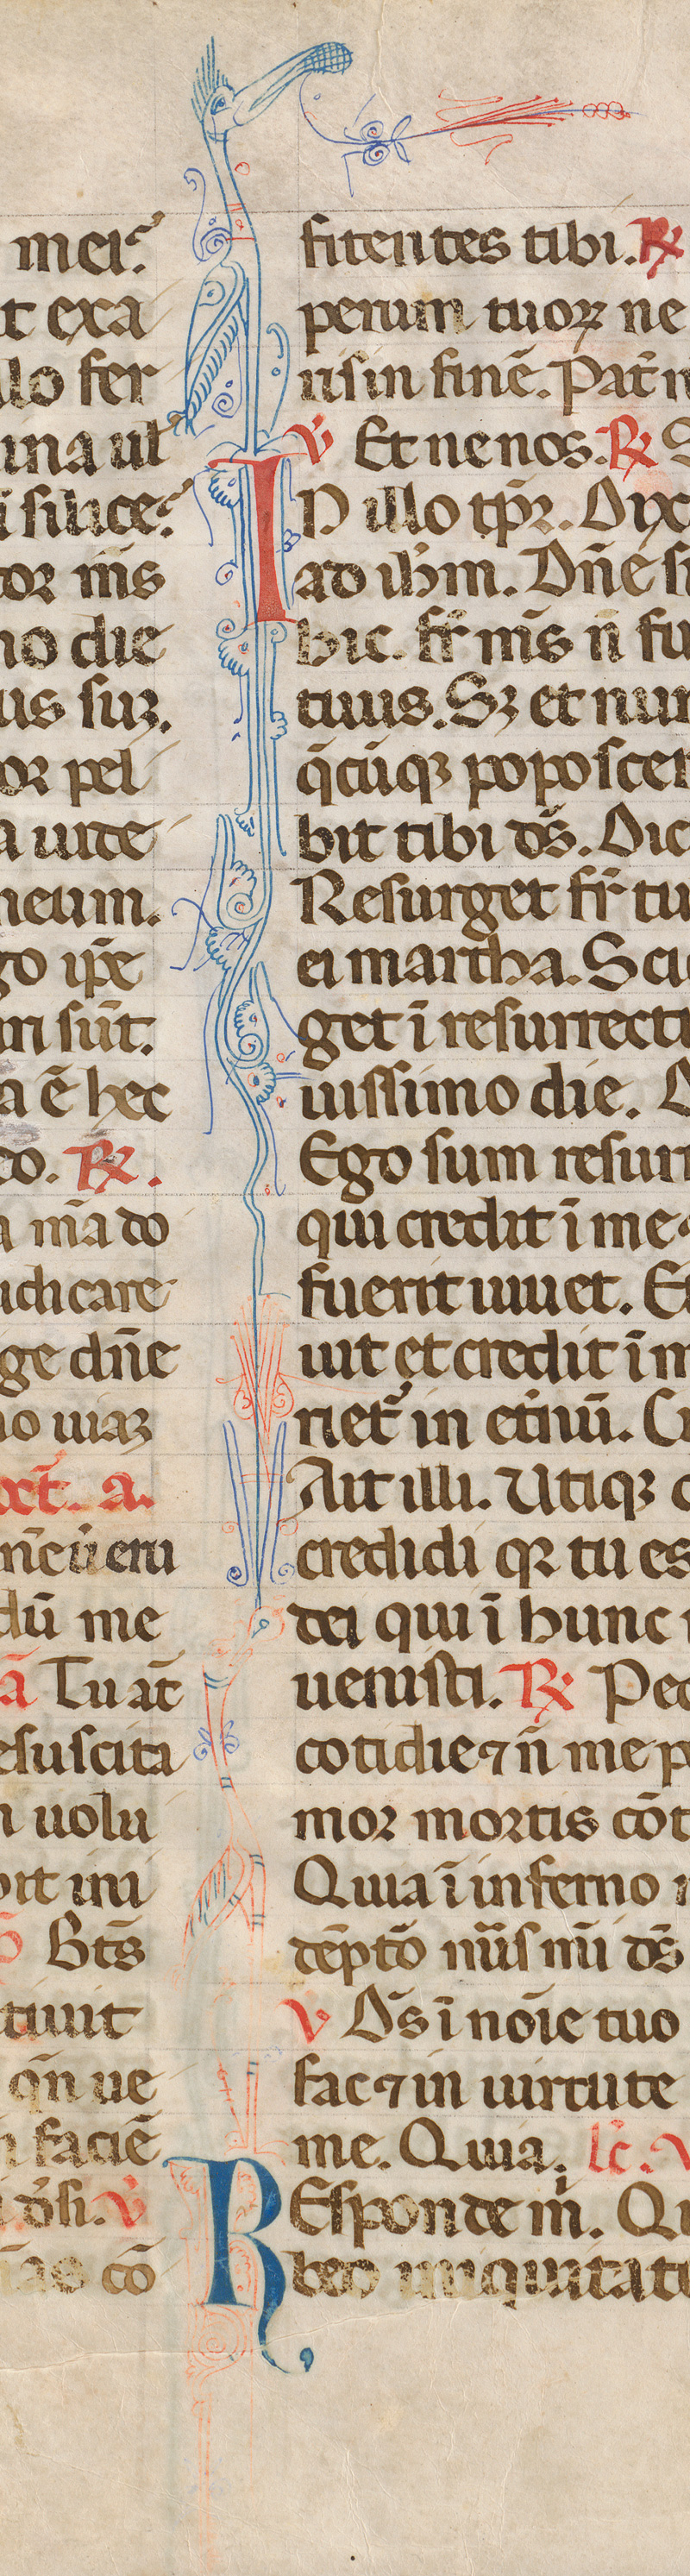 mei.
t exa
llo fer
ina ul
i silice.
tor m̄s
mo die
us suꝫ.
or pel
a uite
meum.
go ip̄e
uri sūt.
a ē hec
eo. ℟.
a m̄a do
udicare
ge dn̄e
no uiaꝫ
a.
dū me
Tu at̄
esuscita
n uolu
ort ini
Bt̄s
tiuit
qn̄ ue
faciē
℣
as cō
fitentes tibi. ℟
perum tuoꝝ ne
ris in finē. Pat̄ n
℣ Et ne nos. ℟ S
IN illo tp̄ꝛ. Dix
ad ih̄m. Dn̄e si
hic. fr̄ m̄s n̄ fu
tuus. Sꝫ et nun
q̄cūqꝫ poposcer
bit tibi ds̄. Dic
Resurget fr̄ tu
ei martha. Scio
get ī resurrecti
uissimo die. D
Ego sum resurr
qui credit ī me
fuerit uiuet. Et
uit et credit ī m
riet᷑ in et̄nū. Cr
Ait illi. Utiqꝫ
credidi qꝛ tu es
dei qui ī hunc
uenisti. ℟ Pec
cotidie ⁊ n̄ me p
mor mortis cōt
Quia ī inferno
dēptō nūs mī ds̄
℣ Ds̄ ī noīe tuo
fac ⁊ in uirtute
me. Quia. lc̄. V
REsponde m̄. Qu
beo iniquitate